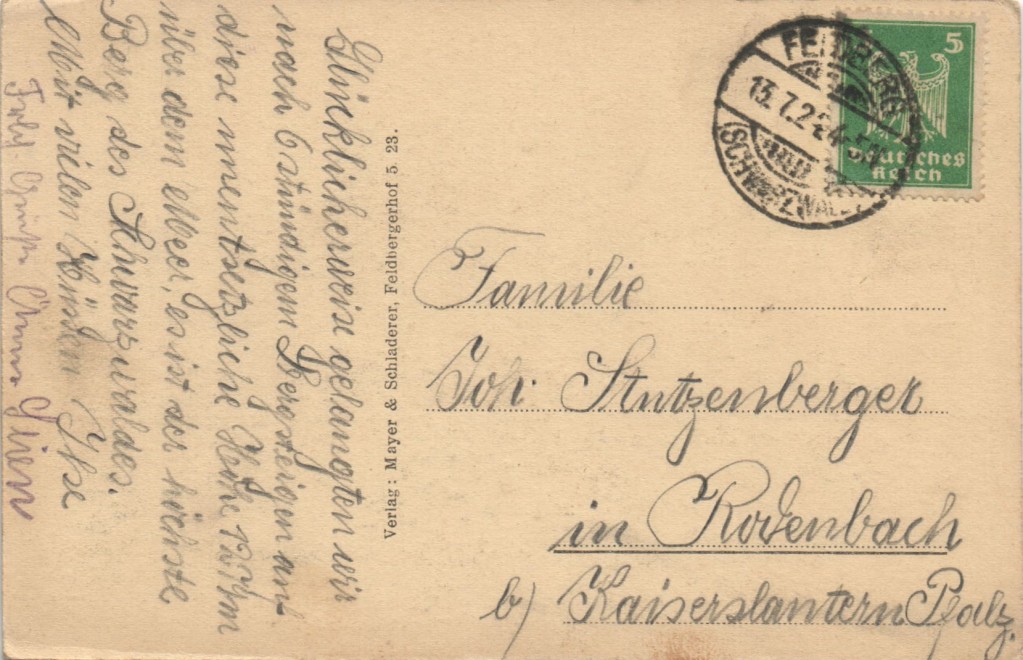 Glücklicherweise gelangten wir
nach 6 stündigem Bergsteigen an
diese unentsetzliche Höhe 1234m
über dem Meer, es ist der höchste
Berg des Schwarzwaldes.
Mit vielen Grüßen Ilse
Anna Gien
Verlag: Mayer & Schladerer, Feldbergerhof 5. 23.
FELDBERG
15.7.2
(SCHWARZWALD)
5
Deutsches
Reich
Familie
Joh. Stutzenberger
in Rodenbach
b) Kaiserslautern Pfalz.